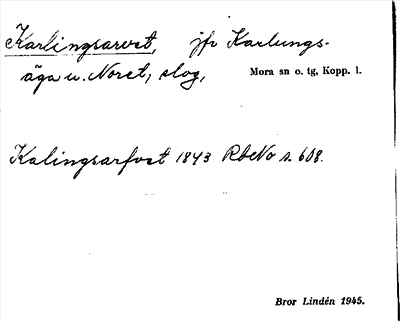 Karlingsarvet, jfr Karlungs-
äga u. Noret, skog, Mora sn o. tg, Kopp. l.
Kalingsarfvet 1843 RbeNo s. 608.
Bror Lindén 1945.